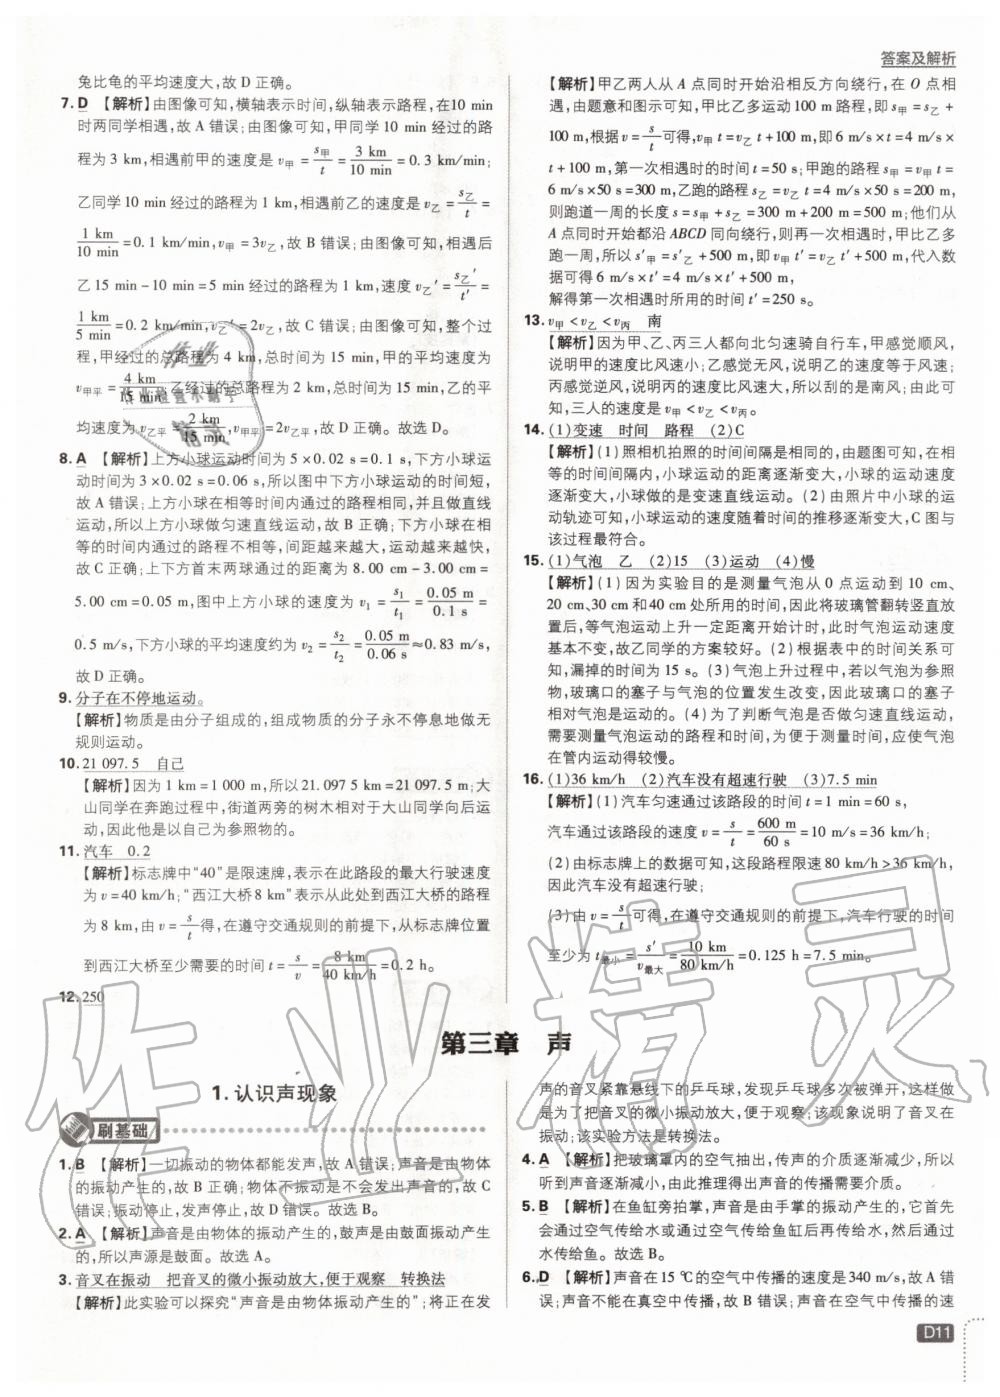 答案及解析
兔比龟的平均速度大,故 D 正确。
7. D 【解析】由图像可知,横轴表示时间,纵轴表示路程,在10 min
时两同学相遇,故 A 错误;由图像可知,甲同学 10 min 经过的路
程为 3 km,相遇前甲的速度是 v甲 = s甲/t = 3 km/10 min = 0.3 km/min;
乙同学 10 min 经过的路程为 1 km,相遇前乙的速度是 v乙 = s乙/t =
1 km/10 min = 0.1 km/min,v甲 = 3v乙,故 B 错误;由图像可知,相遇后
乙 15 min-10 min=5 min 经过的路程为 1 km,速度 v乙′ = s乙′/t′ =
1 km/5 min = 0.2 km/min,v乙′ = 2v乙,故 C 错误;由图像可知,整个过
程,甲经过的总路程为 4 km,总时间为 15 min,甲的平均速度为
v甲平 = 4 km/15 min,乙经过的总路程为 2 km,总时间为 15 min,乙的平
均速度为 v乙平 = 2 km/15 min,v甲平=2v乙平,故 D 正确。故选 D。
8. A 【解析】上方小球运动时间为 5×0.02 s=0.1 s,下方小球运
动时间为 3×0.02 s=0.06 s,所以图中下方小球运动的时间短,
故 A 错误;上方小球在相等时间内通过的路程相同,并且做直线
运动,所以上方小球做匀速直线运动,故 B 正确;下方小球在相
等的时间内通过的路程不相等,间距越来越大,运动越来越快,
故 C 正确;上下方首末两球通过的距离为 8.00 cm-3.00 cm=
5.00 cm=0.05 m,图中上方小球的速度为 v₁ = s₁/t₁ = 0.05 m/0.1 s =
0.5 m/s,下方小球的平均速度约为 v₂ = s₂/t₂ = 0.05 m/0.06 s ≈0.83 m/s,
故 D 正确。
9. 分子在不停地运动。
【解析】物质是由分子组成的,组成物质的分子永不停息地做无
规则运动。
10. 21 097.5 自己
【解析】因为 1 km=1 000 m,所以21.097 5 km=21 097.5 m;大
山同学在奔跑过程中,街道两旁的树木相对于大山同学向后运
动,因此他是以自己为参照物的。
11. 汽车 0.2
【解析】标志牌中“40”是限速牌,表示在此路段的最大行驶速度
为 v=40 km/h;“西江大桥8 km”表示从此处到西江大桥的路程
为 8 km,由 v = s/t 得,在遵守交通规则的前提下,从标志牌位置
到西江大桥至少需要的时间 t = s/v = 8 km/40 km/h = 0.2 h。
12. 250
【解析】甲乙两人从 A 点同时开始沿相反方向绕行,在 O 点相
遇,由题意和图示可知,甲比乙多运动100 m路程,即 s甲 = s乙 +
100 m,根据 v = s/t 可得,v甲 t=v乙 t+100 m,即 6 m/s×t=4 m/s×
t+100 m,第一次相遇时的时间 t=50 s;甲跑的路程 s甲=v甲 t=
6 m/s×50 s=300 m,乙跑的路程 s乙=v乙 t=4 m/s×50 s=200 m,
则跑道一周的长度 s=s甲+s乙=300 m+200 m=500 m;他们从
A 点同时开始都沿 ABCD 同向绕行,则再一次相遇时,甲比乙多
跑一周,所以 s′甲=s′乙+500 m,即 v甲 t′=v乙 t′+500 m,代入数
据可得 6 m/s×t′=4 m/s×t′+500 m,
解得第一次相遇时所用的时间 t′=250 s。
13. v甲<v乙<v丙 南
【解析】因为甲、乙、丙三人都向北匀速骑自行车,甲感觉顺风,
说明甲的速度比风速小;乙感觉无风,说明乙的速度等于风速;
丙感觉逆风,说明丙的速度大于风速,所以刮的是南风;由此可
知,三人的速度是 v甲<v乙<v丙。
14. (1)变速 时间 路程 (2)C
【解析】(1)照相机拍照的时间间隔是相同的,由题图可知,在相
等的时间间隔内,小球运动的距离逐渐变大,小球的运动速度
逐渐变大,小球做的是变速直线运动。(2)由照片中小球的运
动轨迹可知,小球运动的速度随着时间的推移逐渐变大,C 图与
该过程最符合。
15. (1)气泡 乙 (2)15 (3)运动 (4)慢
【解析】(1)因为实验目的是测量气泡从 0 点运动到 10 cm、
20 cm、30 cm和40 cm 处所用的时间,因此将玻璃管翻转竖直放
置后,等气泡运动上升一定距离开始计时,此时气泡运动速度
基本不变,故乙同学的方案较好。(2)根据表中的时间关系可
知,漏掉的时间为 15 s。(3)气泡上升过程中,若以气泡为参照
物,玻璃口的塞子与气泡的位置发生改变,因此玻璃口的塞子
相对气泡是运动的。(4)为了判断气泡是否做匀速直线运动,
需要测量气泡运动的路程和时间,为便于测量时间,应使气泡
在管内运动得较慢。
16. (1)36 km/h (2)汽车没有超速行驶 (3)7.5 min
【解析】(1)汽车匀速通过该路段的时间 t=1 min=60 s,
汽车通过该路段的速度 v = s/t = 600 m/60 s = 10 m/s=36 km/h;
(2)由标志牌上的数据可知,这段路程限速80 km/h>36 km/h,
因此汽车没有超速行驶;
(3)由 v = s/t 可得,在遵守交通规则的前提下,汽车行驶的时间
至少为 t最小 = s′/v最大 = 10 km/80 km/h = 0.125 h=7.5 min。
第三章 声
1. 认识声现象
刷基础
1. B 【解析】一切振动的物体都能发声,故 A 错误;声音是由物体
的振动产生的,故 B 正确;物体不振动是不会发出声音的,故 C
错误;振动停止,发声停止,故 D 错误。故选 B。
2. A 【解析】声音是由物体的振动产生的,鼓声是由鼓面振动产生
的,所以声源是鼓面。故选 A。
3. 音叉在振动 把音叉的微小振动放大,便于观察 转换法
【解析】此实验可以探究“声音是由物体振动产生的”;将正在发
声的音叉紧靠悬线下的乒乓球,发现乒乓球多次被弹开,这样做
是为了把音叉的微小振动放大,便于观察;该现象说明了音叉在
振动;该实验方法是转换法。
4. A 【解析】把玻璃罩内的空气抽出,传声的介质逐渐减少,所以
听到声音逐渐减弱,由此推理得出声音的传播需要介质。
5. B 【解析】在鱼缸旁拍掌,声音是由手掌的振动产生的,它首先
会通过空气传给水或通过空气传给鱼缸后再传给水,然后通过
水传给鱼。故选 B。
6. D 【解析】声音在15 ℃的空气中传播的速度是340 m/s,故 A 错
误;声音不能在真空中传播,故 B 错误;声音在空气中传播的速
D11
作业
作业检查小助手
精灵
作业精灵